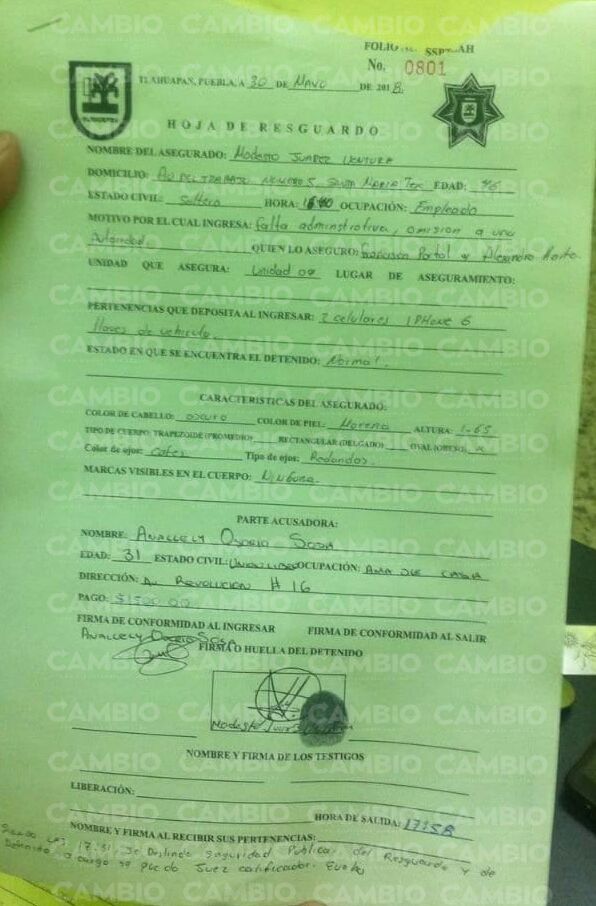 FOLIO
No. 0801
TLAHUAPAN, PUEBLA, A 30 DE Mayo DE 2018
HOJA DE RESGUARDO
NOMBRE DEL ASEGURADO: Modesto Juarez Ventura
DOMICILIO: Numero 5 Santa Maria Tex EDAD: 46
ESTADO CIVIL: Soltero HORA: OCUPACIÓN: Empleado
MOTIVO POR EL CUAL INGRESA: falta administrativa, omision a una
Autoridad QUIEN LO ASEGURO: Portal y Alexandro
UNIDAD QUE ASEGURA: Unidad 09 LUGAR DE ASEGURAMIENTO:
PERTENENCIAS QUE DEPOSITA AL INGRESAR: 2 celulares IPHone 6
llaves de vehiculo
ESTADO EN QUE SE ENCUENTRA EL DETENIDO: Normal.
CARACTERISTICAS DEL ASEGURADO:
COLOR DE CABELLO: oscuro COLOR DE PIEL: Morena ALTURA: 1-65
TIPO DE CUERPO: TRAPEZOIDE (PROMEDIO) RECTANGULAR (DELGADO) OVAL (OBESO) x
Color de ojos: cafes Tipo de ojos: Redondos.
MARCAS VISIBLES EN EL CUERPO: Ninguna.
PARTE ACUSADORA:
NOMBRE: Anallely Osorio Sosa
EDAD: 31 ESTADO CIVIL: Union Libre OCUPACIÓN: Ama de casa
DIRECCIÓN: Av Revolucion # 16
PAGO: $1500.00
FIRMA DE CONFORMIDAD AL INGRESAR FIRMA DE CONFORMIDAD AL SALIR
Anallely Osorio Sosa
FIRMA O HUELLA DEL DETENIDO
Modesto
NOMBRE Y FIRMA DE LOS TESTIGOS
LIBERACIÓN:
HORA DE SALIDA: 17:58
NOMBRE Y FIRMA AL RECIBIR SUS PERTENENCIAS:
Siendo las 17:51 se Deslinda Seguridad Publica del Resguardo y de
Detenido a cargo se Juez calificador
CAMBIO